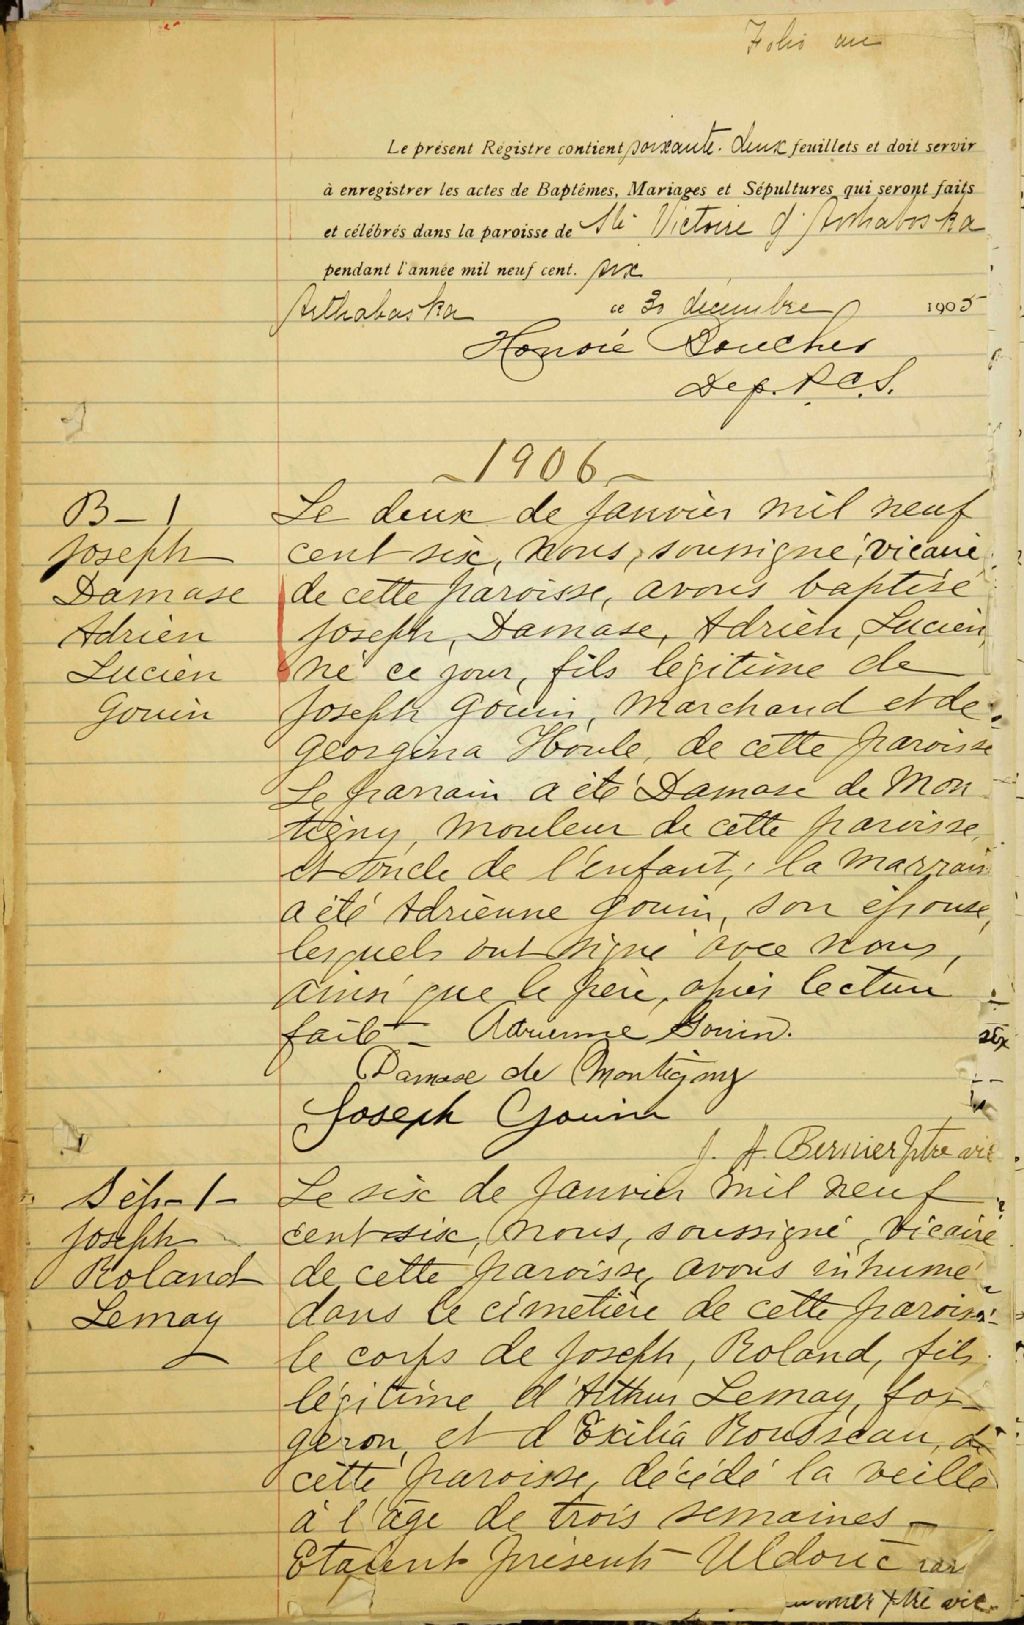 Folio un
Le présent Régistre contient soixante-deux feuillets et doit servir
à enregistrer les actes de Baptêmes, Mariages et Sépultures qui seront faits
et célébrés dans la paroisse de Ste Victoire d'Arthabaska
pendant l'année mil neuf cent. six
Arthabaska ce 30 décembre 1905
Honoré
Dep. P.C.S.
1906
B-1
Joseph
Damase
Adrien
Lucien
Gouin
Le deux de Janvier mil neuf
cent six, nous, soussigné, vicaire
de cette paroisse, avons baptisé
Joseph, Damase, Adrien, Lucien,
né ce jour, fils légitime de
Joseph Gouin, Marchand et de
Georgina Houle, de cette paroisse
Le parrain a été Damase de Mon
tigny, mouleur de cette paroisse,
et oncle de l'enfant; la marrain
a été Adrienne Gouin, son épouse,
lesquels ont signé avec nous,
ainsi que le père, après lecture
faite - Adrienne Gouin.
Damase de Montigny
Joseph Gouin
J. A. Bernier Ptre vic
Sép-1-
Joseph
Roland
Lemay
Le six de Janvier mil neuf
cent six, nous, soussigné, vicaire
de cette paroisse, avons inhumé
dans le cimetière de cette paroisse
le corps de Joseph, Roland, fils
légitime d'Arthur Lemay, for-
geron, et d'Exilia Rousseau, de
cette paroisse, décédé la veille
à l'âge de trois semaines -
Etaient présents - Uldoric
ptre vic.